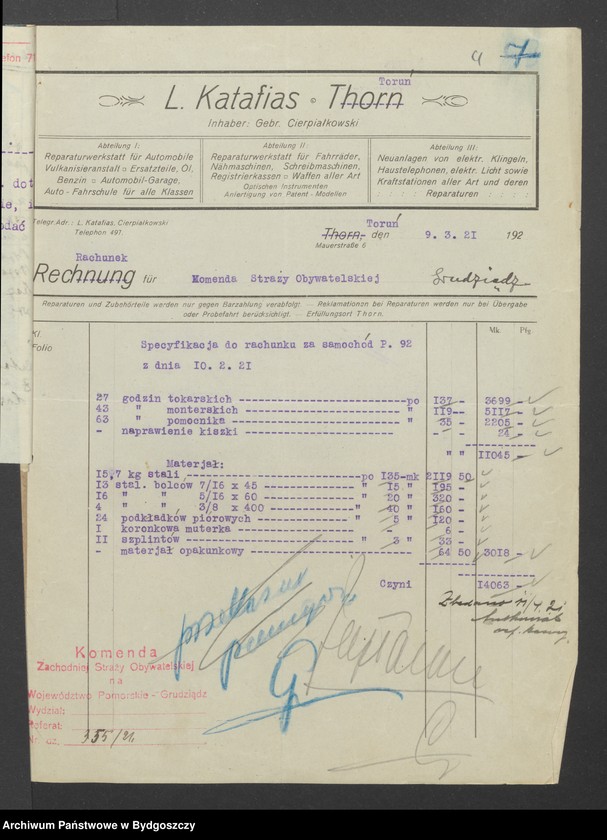 elon 7
9 7
Toruń
L. Katafias Thorn
Inhaber: Gebr. Cierpiałkowski
Abteilung I:
Reparaturwerkstatt für Automobile
Vulkanisieranstalt = Ersatzteile, Öl,
Benzin = Automobil-Garage,
Auto-Fahrschule für alle Klassen
Abteilung II:
Reparaturwerkstatt für Fahrräder,
Nähmaschinen, Schreibmaschinen,
Registrierkassen = Waffen aller Art
Optischen Instrumenten
Anfertigung von Patent-Modellen
Abteilung III:
Neuanlagen von elektr. Klingeln,
Haustelephonen, elektr. Licht sowie
Kraftstationen aller Art und deren
: : : : Reparaturen : : : :
. dot
Telegr.Adr.: L. Katafias, Cierpiałkowski
Telephon 491.
Toruń
Thorn, den 9. 3. 21 192
Mauerstraße 6
Rachunek
Rechnung für Komenda Straży Obywatelskiej Grudziądz
Reparaturen und Zubehörteile werden nur gegen Barzahlung verabfolgt. — Reklamationen bei Reparaturen werden nur bei Übergabe
oder Probefahrt berücksichtigt. — Erfüllungsort Thorn.
Folio Mk. Pfg
Specyfikacja do rachunku za samochód P. 92
z dnia IO. 2. 2I
27 godzin tokarskich ---po I37 - 3699 -
43 " monterskich --- " II9-- 5II7 -
63 " pomocnika --- " 35 - 2205 -
- naprawienie kiszki --- - - 24 -
" " II045 --
Materjał:
I5,7 kg stali --- po I35-mk 2II9 50
I3 stal. bolców 7/I6 x 45 --- " I5 " I95 -
I6 " " 5/I6 x 60 --- " 20 " 320 -
4 " " 3/8 x 400 --- " 40 " I60 -
24 podkładków piorowych --- " 5 " I20 -
I koronkowa muterka --- - 6 -
II szplintów --- " 3 " 33 -
- materjał opakunkowy --- 64 50 30I8 -
Czyni I4063 -
Zbadano
Komenda
Zachodniej Straży Obywatelskiej
na
Województwo Pomorskie - Grudziądz
Wydział:
Referat:
Nr. dz. 355/21
Archiwum Państwowe w Bydgoszczy